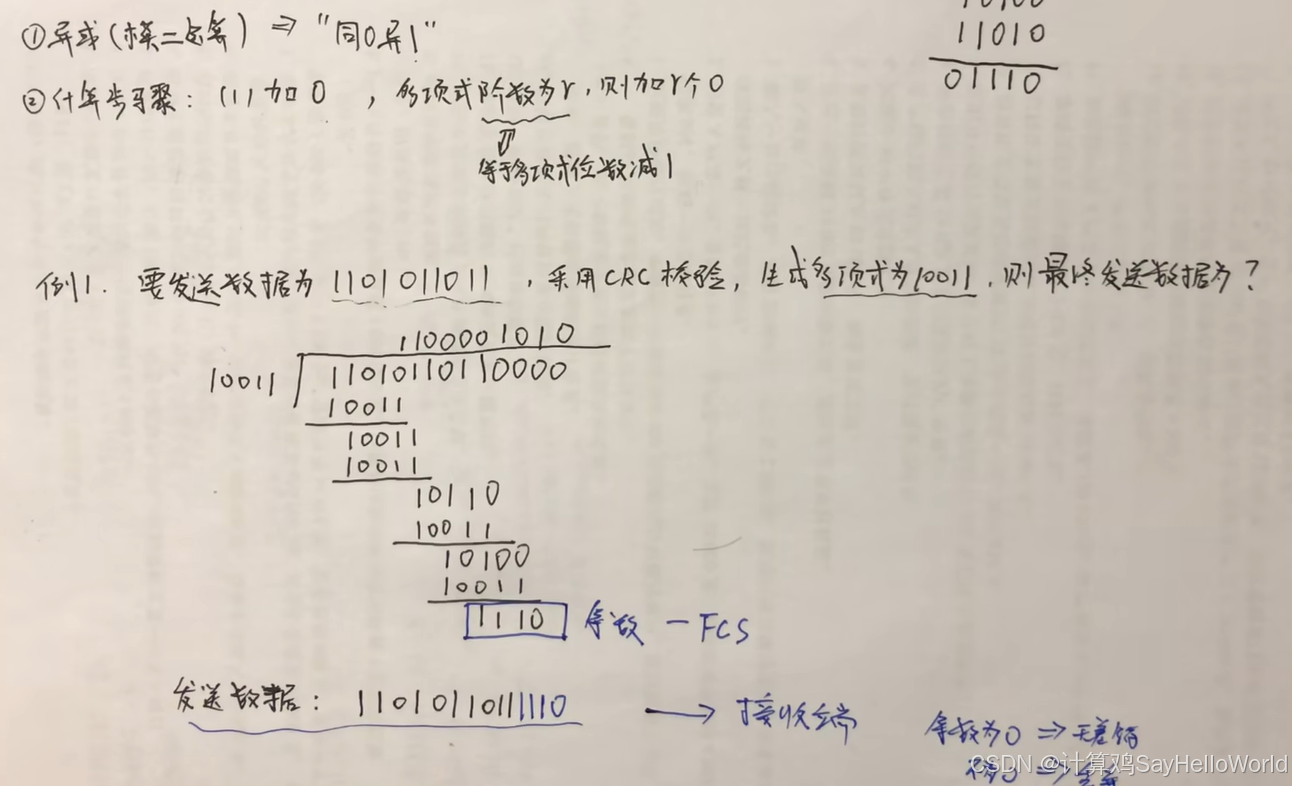 ①异或(模二运算) ⇒ "同0异1"
11010
01110
②计算步骤: (1) 加0 , 多项式阶数为r, 则加r个0
等于多项式位数减1
例1. 要发送数据为 1101011011 , 采用CRC校验, 生成多项式为10011, 则最终发送数据为?
1100001010
10011 11010110110000
10011
10011
10011
10110
10011
10100
10011
1110 余数 — FCS
发送数据: 11010110111110 → 接收端
余数为0 ⇒ 无差错
CSDN @计算鸡SayHelloWorld